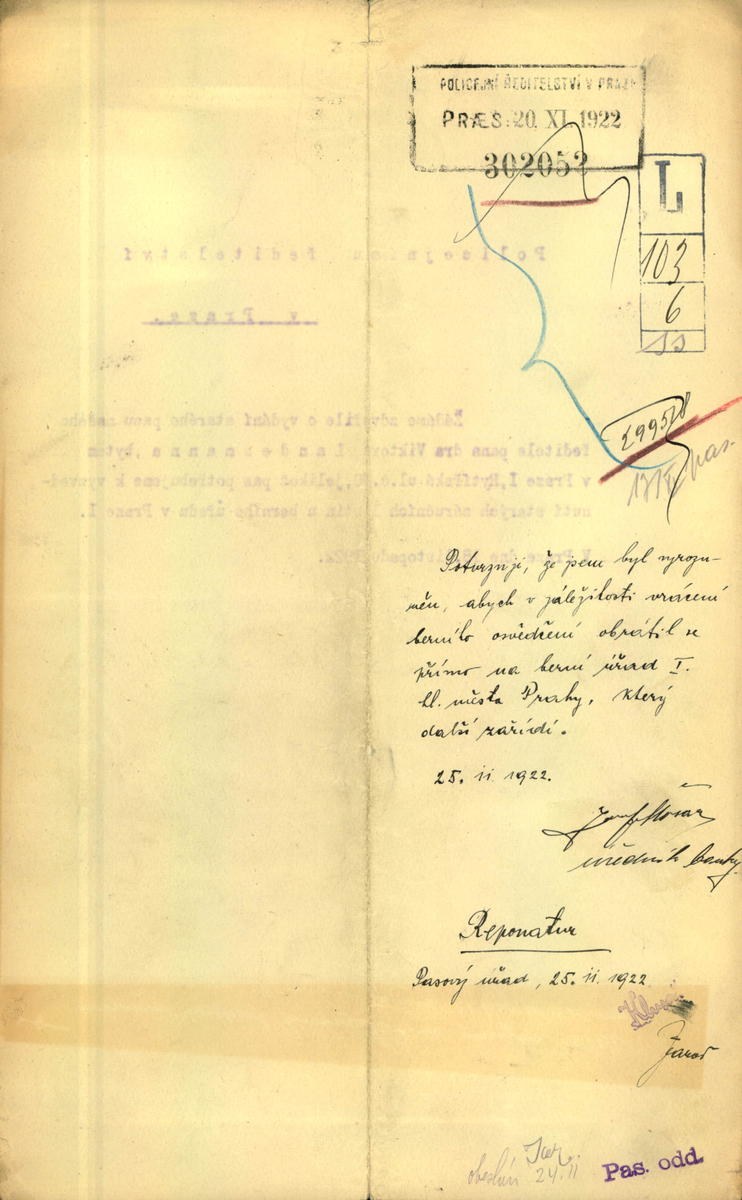 POLICEJNÍ ŘEDITELSTVÍ V PRAZE
PRÆS: 20. XI. 1922
302052
L
103
6
Policejnímu ředitelství
v Praze.
Žádáme zdvořile o vydání starého pasu našeho
ředitele pana dra Viktora Landermanna, bytem
v Praze I, Rytířská ul.č. , jelikož pas potřebujeme k vyzved-
nutí starých náručních u berního úřadu v Praze I.
V Praze dne 18. listopadu 1922.
29957/8
pas.
Potvrzuji, že jsem byl vyrozu-
měn, abych v záležitosti vrácení
berního osvědčení obrátil se
přímo na berní úřad I.
hl. města Prahy, který
další zařídí.
25. 11. 1922.
Josef
úředník banky
Reponatur
Pasový úřad, 25. 11. 1922
Jaroš
24.11
Pas. odd.